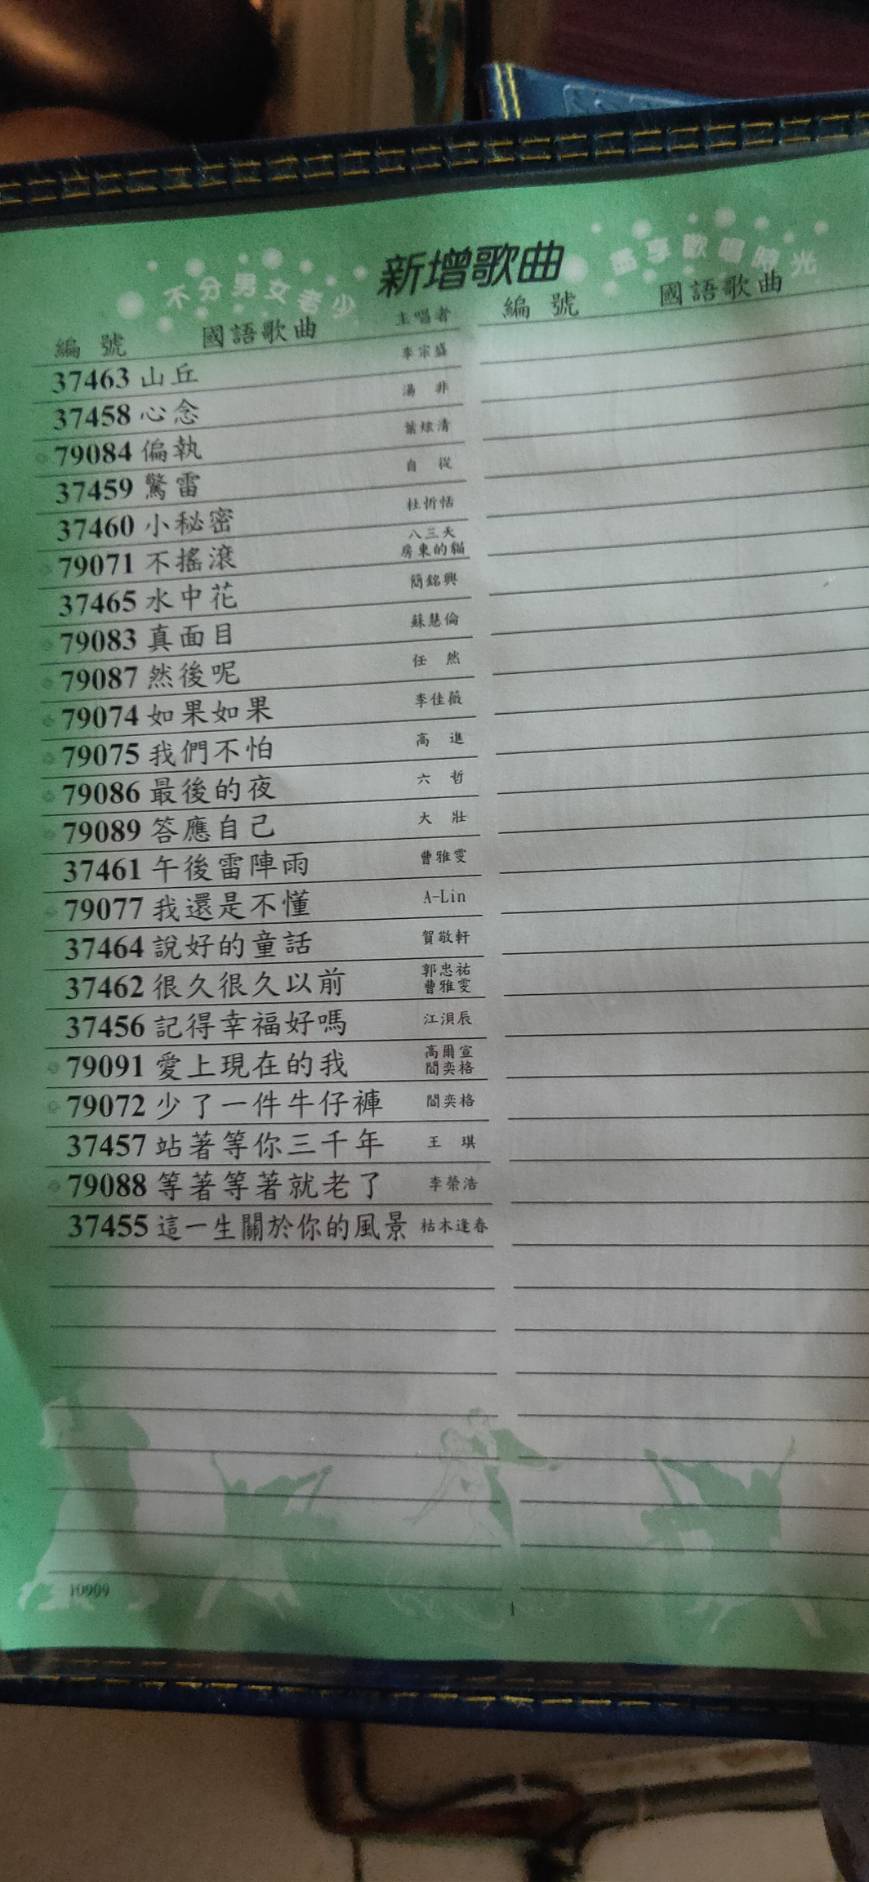 不分男女老少 新增歌曲 盡享歡唱時光
編 號 國語歌曲 主唱者 編 號 國語歌曲
37463 山丘 李宗盛
37458 心念 湯 非
79084 偏執 葉炫清
37459 驚雷 自 從
37460 小秘密 杜忻恬
79071 不搖滾 八三夭 房東的貓
37465 水中花 簡銘興
79083 真面目 蘇慧倫
79087 然後呢 任 然
79074 如果如果 李佳薇
79075 我們不怕 高 進
79086 最後的夜 六 哲
79089 答應自己 大 壯
37461 午後雷陣雨 曹雅雯
79077 我還是不懂 A-Lin
37464 說好的童話 賀敬軒
37462 很久很久以前 郭忠祐 曹雅雯
37456 記得幸福好嗎 江浿辰
79091 愛上現在的我 高爾宣 閻奕格
79072 少了一件牛仔褲 閻奕格
37457 站著等你三千年 王 琪
79088 等著等著就老了 李榮浩
37455 這一生關於你的風景 枯木逢春
10909
1